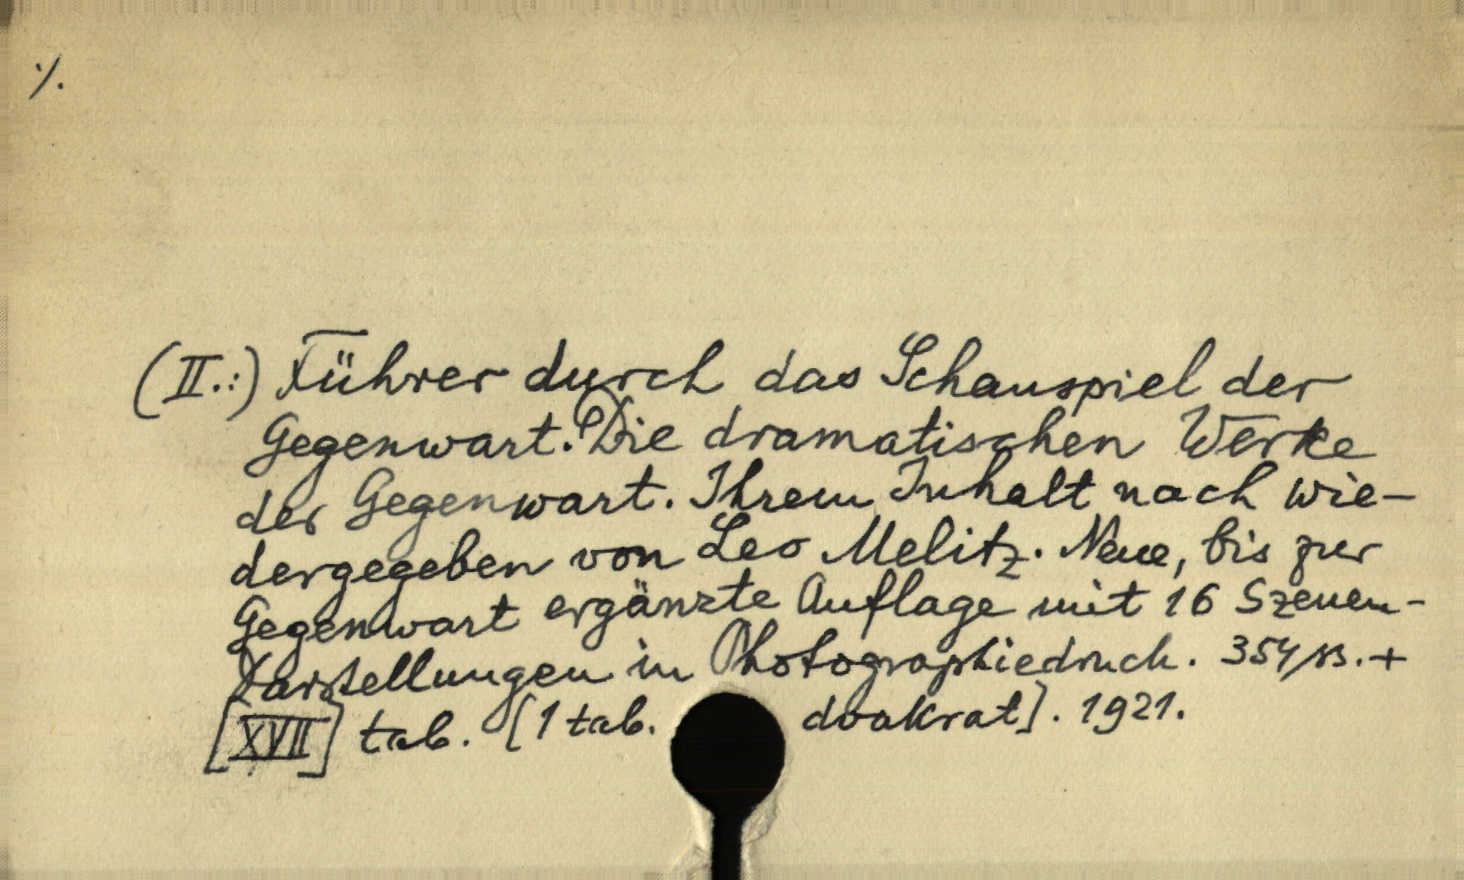 ./.
(II.:) Führer durch das Schauspiel der
Gegenwart. Die dramatischen Werke
der Gegenwart. Ihrem Inhalt nach wie-
dergegeben von Leo Melitz. Neue, bis zur
Gegenwart ergänzte Auflage mit 16 Szenen-
Darstellungen in Photographiedruck. 354 s. +
[XVII] tab. [1 tab. dvakrat]. 1921.